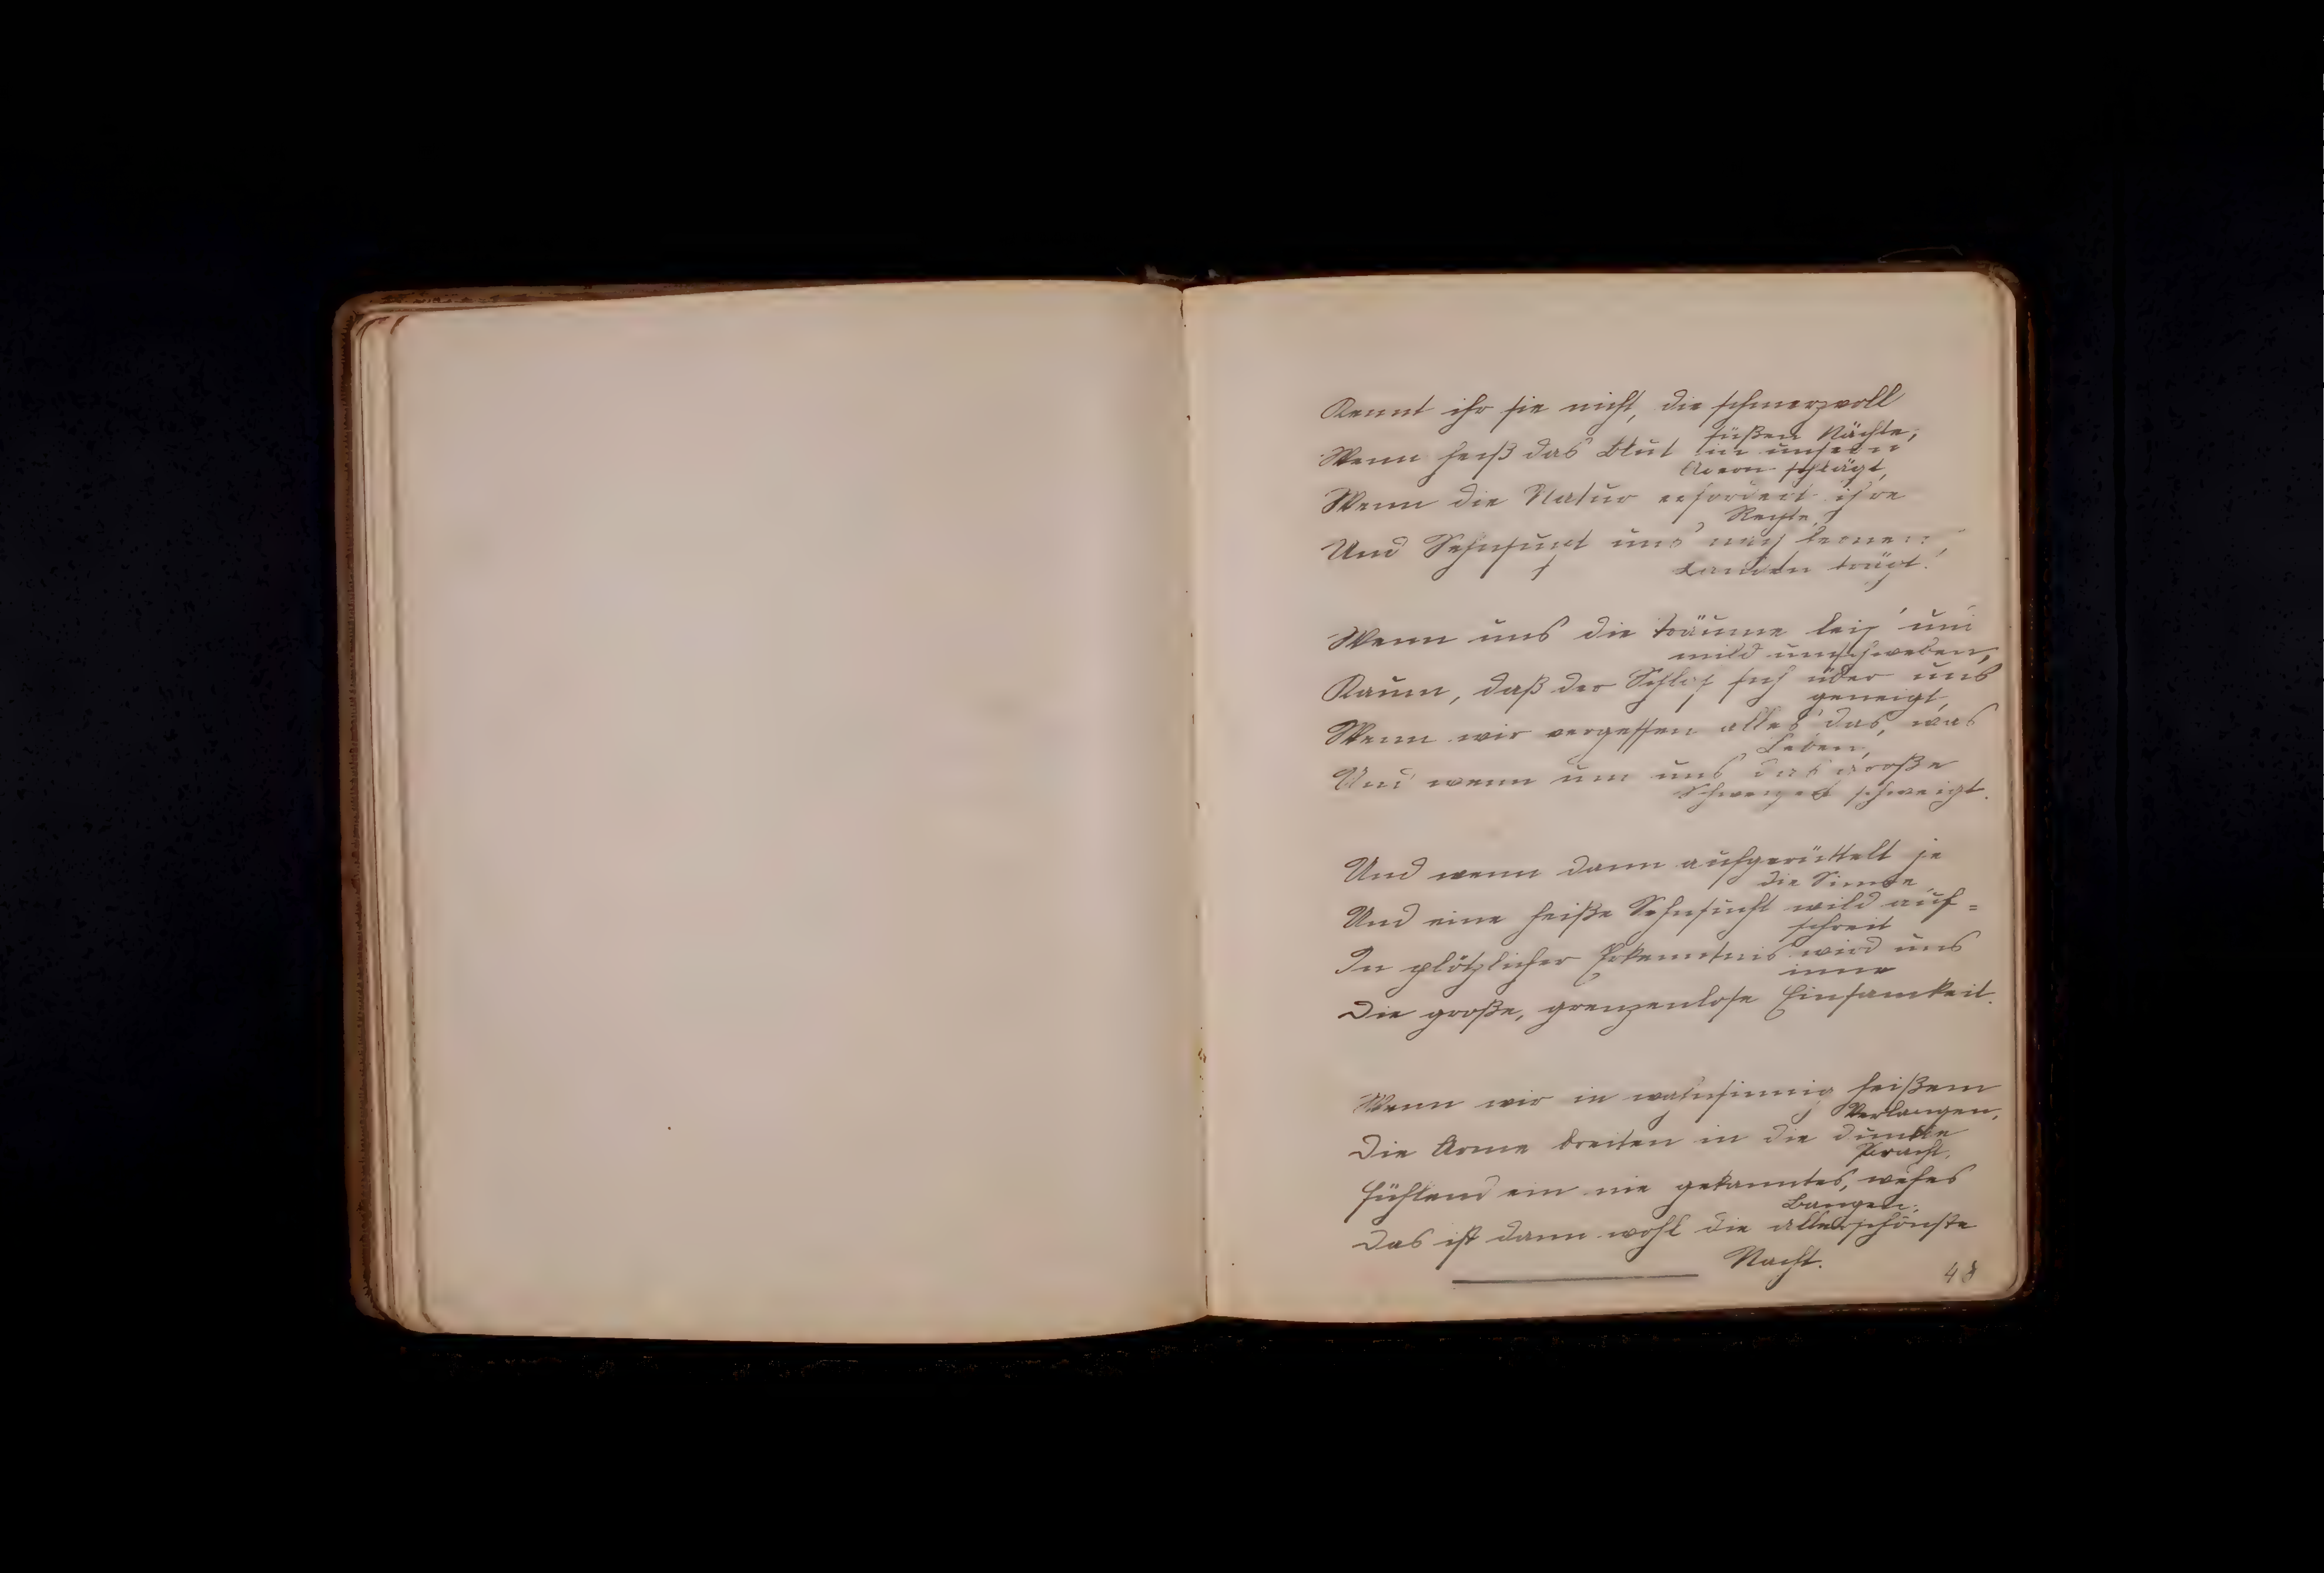 Kennt ihr sie nicht, die schmerzvoll
süßen Nächte,
Wenn heiß das Blut in unsern
Adern schlägt,
Wenn die Natur erfordert ihre
Rechte,
Und Sehnsucht uns nach fernen
Landen trägt.
Wenn uns die Träume leis' und
mild umschweben,
Kaum, daß der Schlaf sich über uns
geneigt,
Wenn wir vergessen alles das, was
Leben,
Und wenn um uns das große
Schweigen schweigt.
Und wenn dann aufgerüttelt je
die Sinne
Und eine heiße Sehnsucht wild auf=
schreit
In plötzlicher Erkenntnis wird uns
inne
Die große, grenzenlose Einsamkeit.
Wenn wir in wahnsinnig heißem
Verlangen,
Die Arme breiten in die dunkle
Pracht,
Fühlend ein nie gekanntes, wehes
Bangen:
Das ist dann wohl die allerschönste
Nacht.
48